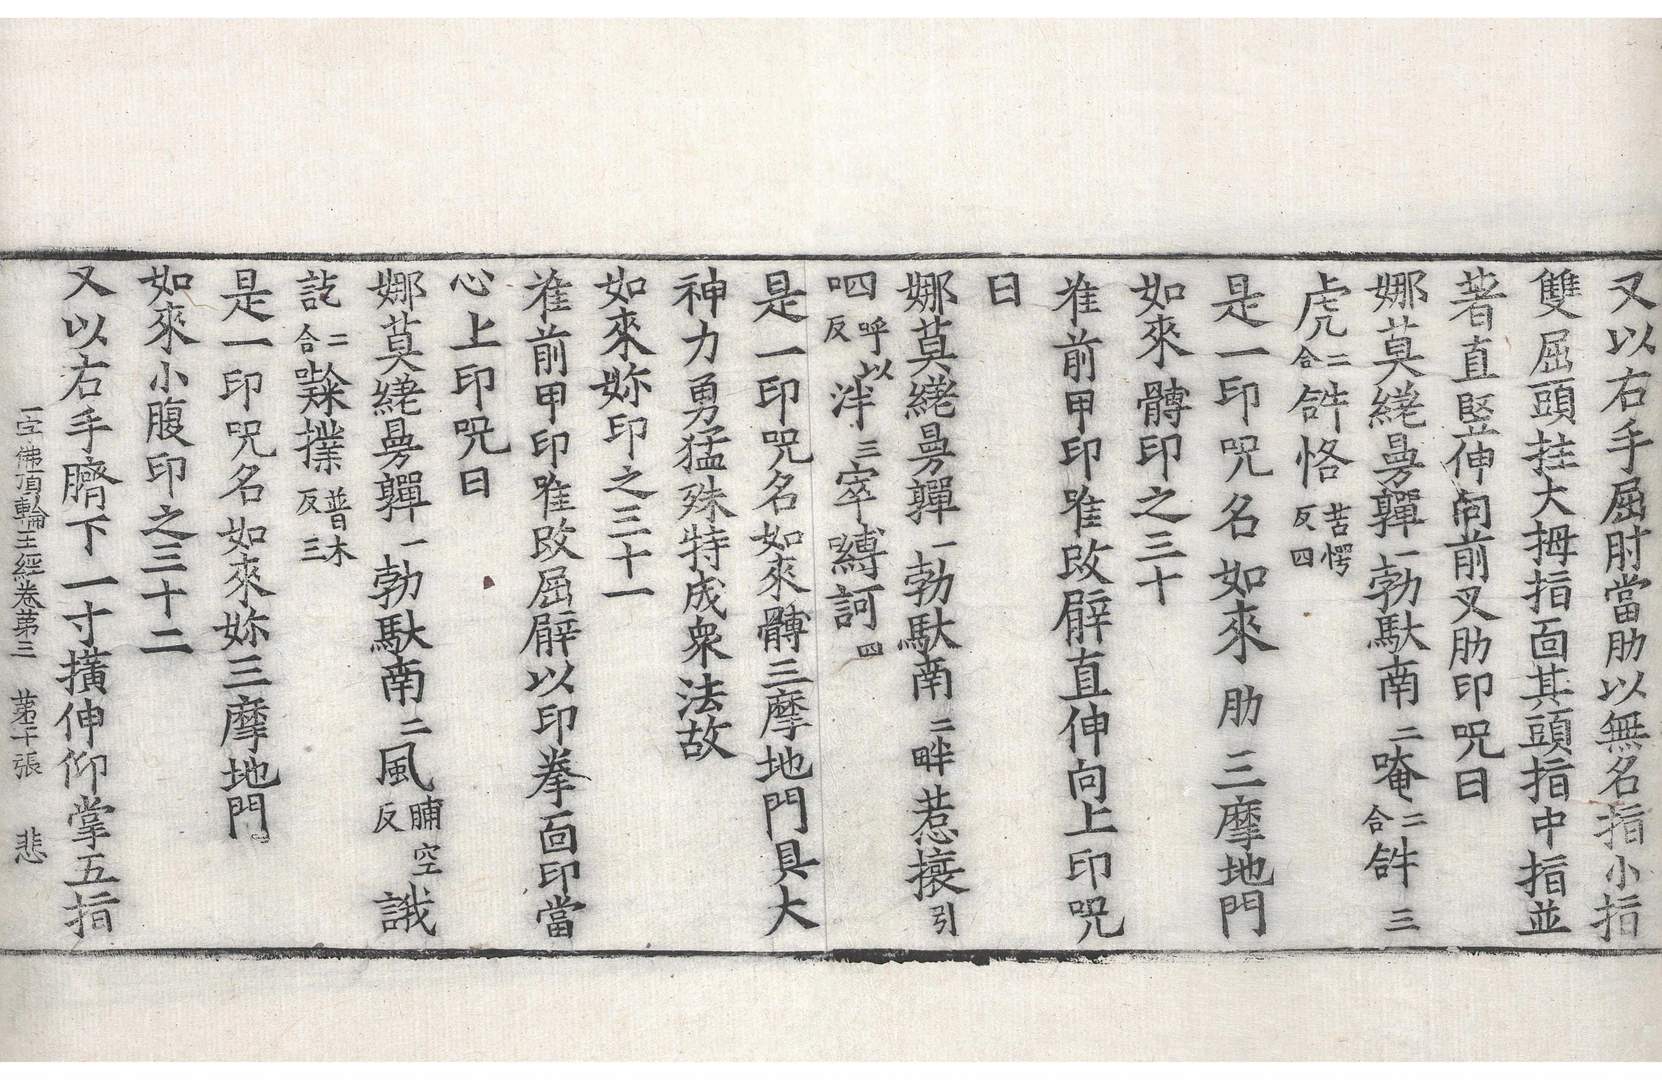 又以右手屈肘當肋以無名指小指
雙屈頭拄大拇指面其頭指中指並
著直竪伸向前叉肋印呪曰
娜莫繞曼亸一勃馱南二唵二合𤙖三
虎二合𤙖恪苦愕反四
是一印呪名如來肋三摩地門
如來髆印之三十
准前甲印唯改臂直伸向上印呪
曰
娜莫繞曼亸一勃馱南二畔惹攘引
呬呼以反泮三窣嚩訶四
是一印呪名如來髆三摩地門具大
神力勇猛殊特成衆法故
如來妳印之三十一
准前甲印唯改屈臂以印拳面印當
心上印呪曰
娜莫繞曼亸一勃馱南二風脯空反誐
訖二合㗚撲普木反三
是一印呪名如來妳三摩地門
如來小腹印之三十二
又以右手臍下一寸擴伸仰掌五指
一字佛頂輪王經卷第三 第千張 悲